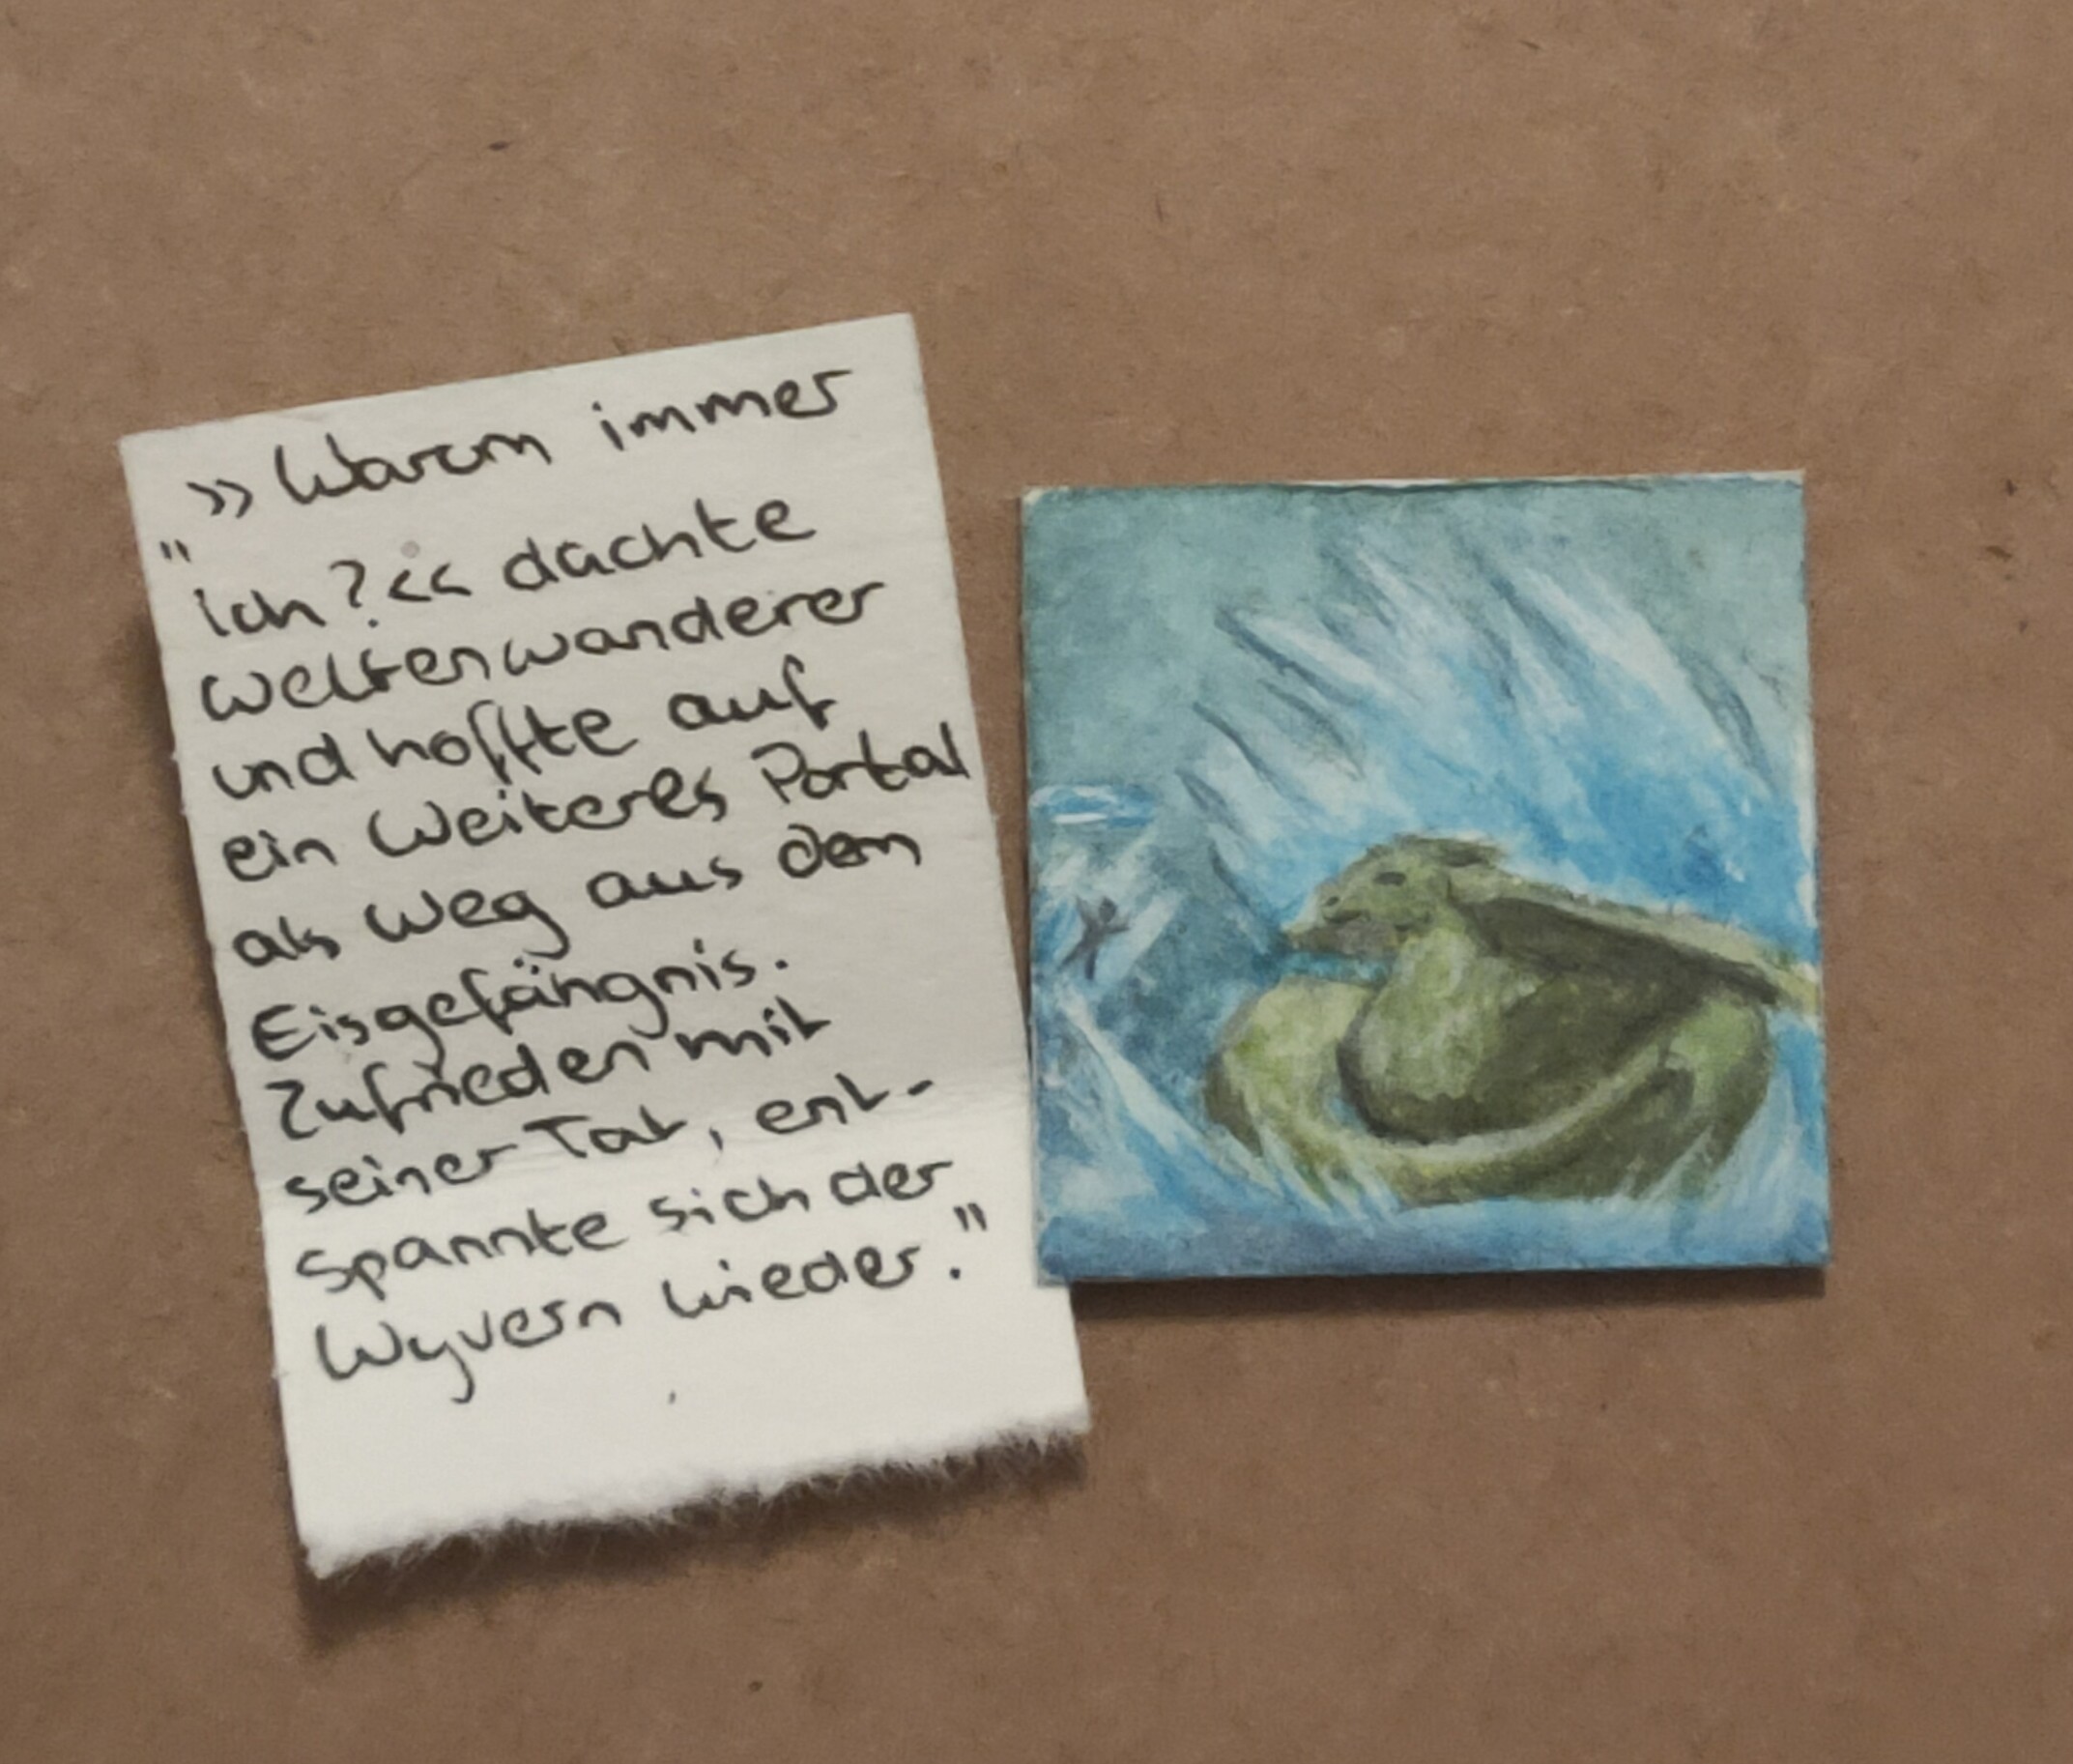 >> Warum immer
"
ich?<< dachte
weltenwanderer
und hoffte auf
ein Weiteres Portal
als Weg aus dem
Eisgefängnis.
Zufrieden mit
seiner Tat, ent-
spannte sich der
Wyvern wieder."